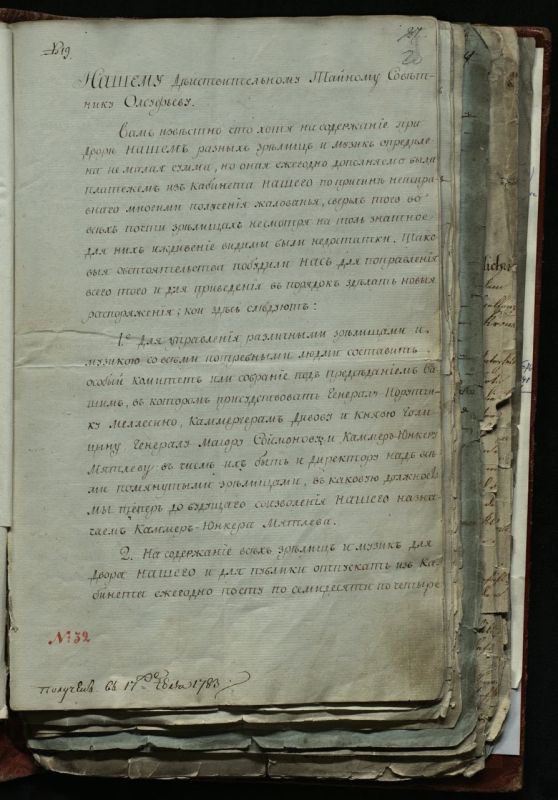 №19.
Нашему Дѣиствительному Тайному Совѣт-
нику Олсуфьеву.
Вамъ извѣстно что хотя на содержанїе при
дворѣ нашемъ разныхъ зрѣлищъ и музикъ опредѣле-
на не малая сумма, но оная ежегодно дополняема была
платежемъ изъ кабинета нашего по причинѣ неисправ-
наго многими полученїя жалованья, сверьхъ того во
всѣхъ почти зрѣлищахъ несмотря на толь знатное
для нихъ иждивенїе видимы были недостатки. Тако-
выя обстоятельства побудили насъ для поправленїя
всего того и для приведенїя въ порядокъ здѣлать новыя
распоряженїя; кои здѣсь слѣдуютъ:
1е Для управленїя различными зрѣлищами и
музикою со всѣми потребными людми составить
особый комитетъ или собранїе подъ предсѣданїемъ Ва-
шимъ, въ которомъ присудствовать Генералъ Порутчи-
ку Мелиссино, Каммергерамъ Дивову и Князю Голи-
цыну Генералъ Маїору Соймонову, и Каммеръ-Юнкеру
Мятлеву въ числѣ ихъ быть и директору надъ всѣ-
ми помянутыми зрѣлищами, въ каковую должность
мы теперь до будущаго соизволенїя нашего назна-
чаемъ Каммеръ-Юнкера Мятлева.
2. На содержанїе всѣхъ зрѣлищъ и музикъ для
двора нашего и для публики отпускать изъ ка-
бинета ежегодно по сту по семидесяти по четыре
№: 32
получено въ 17 Iюля 1783